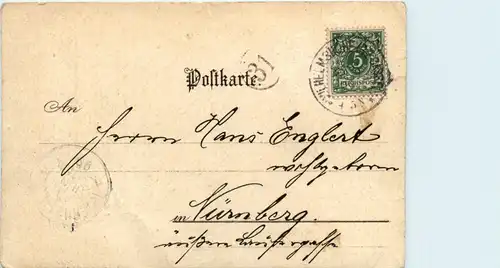 Postkarte.
31
5
An
Herrn Hans Englert
wohlgeboren
in Nürnberg.
äußere Laufergasse